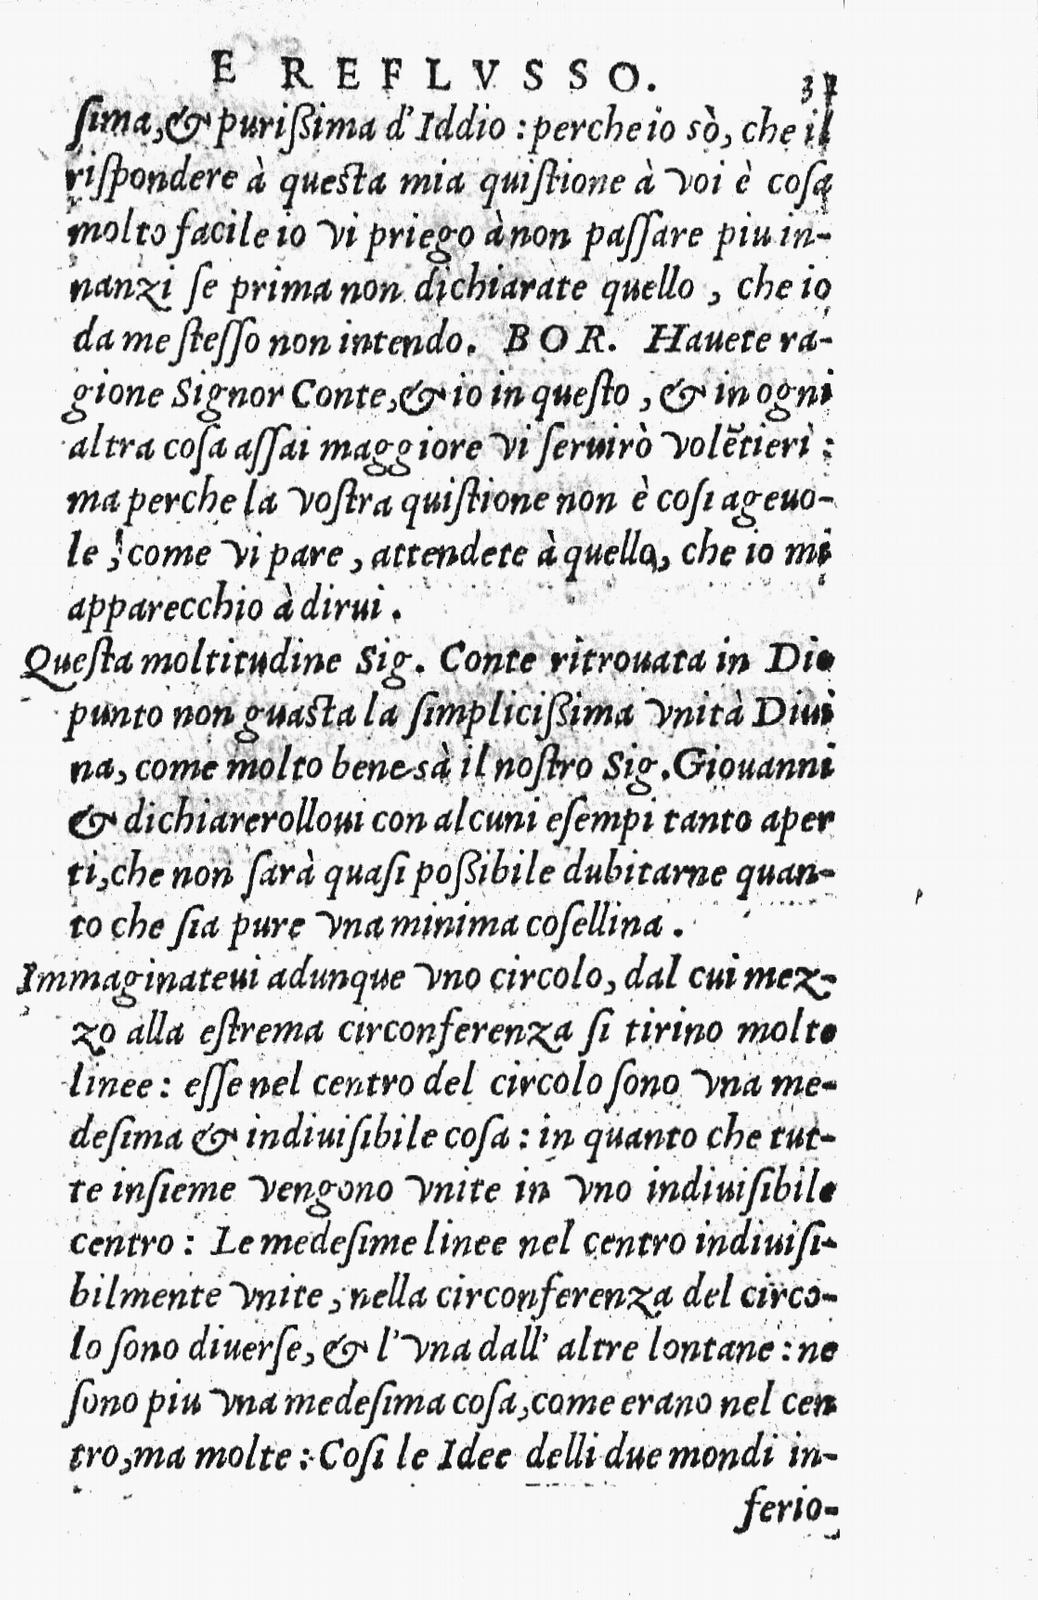 E REFLVSSO. 37
ſima, & purißima d'Iddio : perche io sò, che il
riſpondere à questa mia quiſtione à voi è coſa
molto facile io vi priego à non paſſare piu in-
nanzi ſe prima non dichiarate quello , che io
da me ſteſſo non intendo. BOR. Hauete ra-
gione Signor Conte, & io in queſto , & in ogni
altra coſa aſſai maggiore vi ſeruirò volẽtieri :
ma perche la voſtra quiſtione non è coſi ageuo-
le , come vi pare , attendete à quello, che io mi
apparecchio à dirui .
Queſta moltitudine Sig. Conte ritrouata in Dio
punto non guasta la ſimplicißima vnità Diui
na, come molto bene sà il noſtro Sig. Giouanni
& dichiarerolloui con alcuni eſempi tanto aper
ti, che non ſarà quaſi poßibile dubitarne quan-
to che ſia pure vna minima coſellina .
Immaginateui adunque vno circolo, dal cui mez-
zo alla eſtrema circonferenza ſi tirino molte
linee : eſſe nel centro del circolo ſono vna me-
deſima & indiuiſibile coſa : in quanto che tut-
te inſieme vengono vnite in vno indiuiſibile
centro : Le medeſime linee nel centro indiuiſi-
bilmente vnite , nella circonferenza del circo-
lo ſono diuerſe, & l'vna dall' altre lontane : ne
ſono piu vna medeſima coſa, come erano nel cen
tro, ma molte : Coſi le Idee delli due mondi in-
ferio-